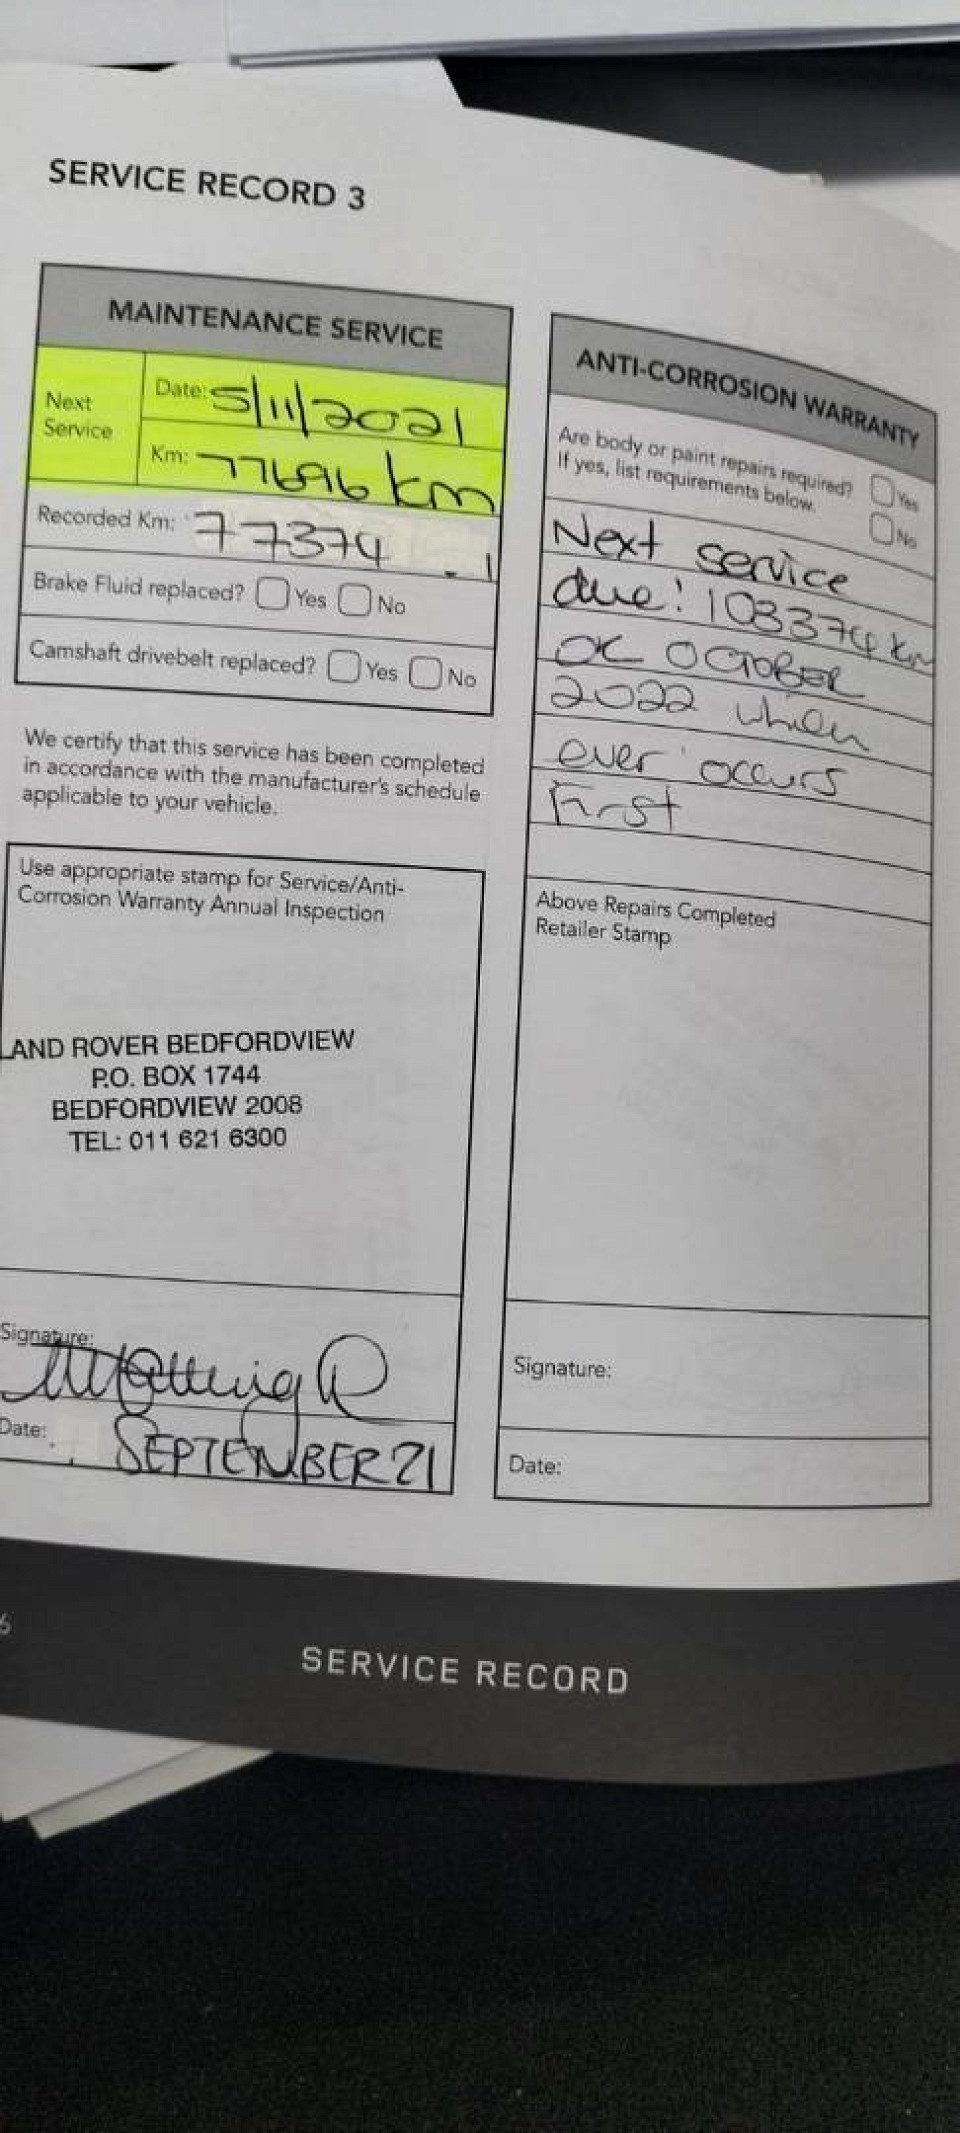 SERVICE RECORD 3
MAINTENANCE SERVICE
Next Service
Date: 5/11/2021
Km: 77696 km
Recorded Km: 77374
Brake Fluid replaced? Yes No
Camshaft drivebelt replaced? Yes No
We certify that this service has been completed
in accordance with the manufacturer's schedule
applicable to your vehicle.
Use appropriate stamp for Service/Anti-
Corrosion Warranty Annual Inspection
LAND ROVER BEDFORDVIEW
P.O. BOX 1744
BEDFORDVIEW 2008
TEL: 011 621 6300
Signature:
Date: SEPTEMBER 21
ANTI-CORROSION WARRANTY
Are body or paint repairs required? Yes
If yes, list requirements below. No
Next service
due: 103374 km
OC OCTOBER
2022 when
ever occurs
First
Above Repairs Completed
Retailer Stamp
Signature:
Date:
6
SERVICE RECORD